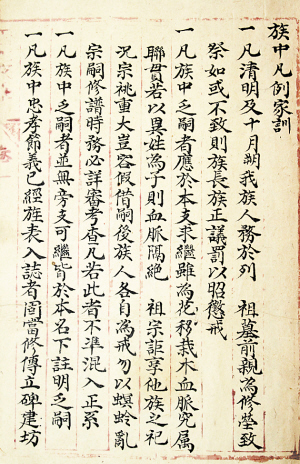 族中凡例家訓
一凡清明及十月朔我族人務於列 祖墓前親為修塋致
祭如或不致則族長族正議罰以昭懲戒
一凡族中乏嗣者應於本支求繼雖為花移栽木血脈究属
聯貫若以異姓為子則血脈隔絶 祖宗詎享他族之祀
况宗祧重大豈容假借嗣後族人各自為戒勿以螟蛉亂
宗嗣修譜時務必詳審考查凡若此者不準混入正系
一凡族中乏嗣者並無旁支可繼皆於本名下註明乏嗣
一凡族中忠孝節義已經旌表入誌者固當修傳立碑建坊